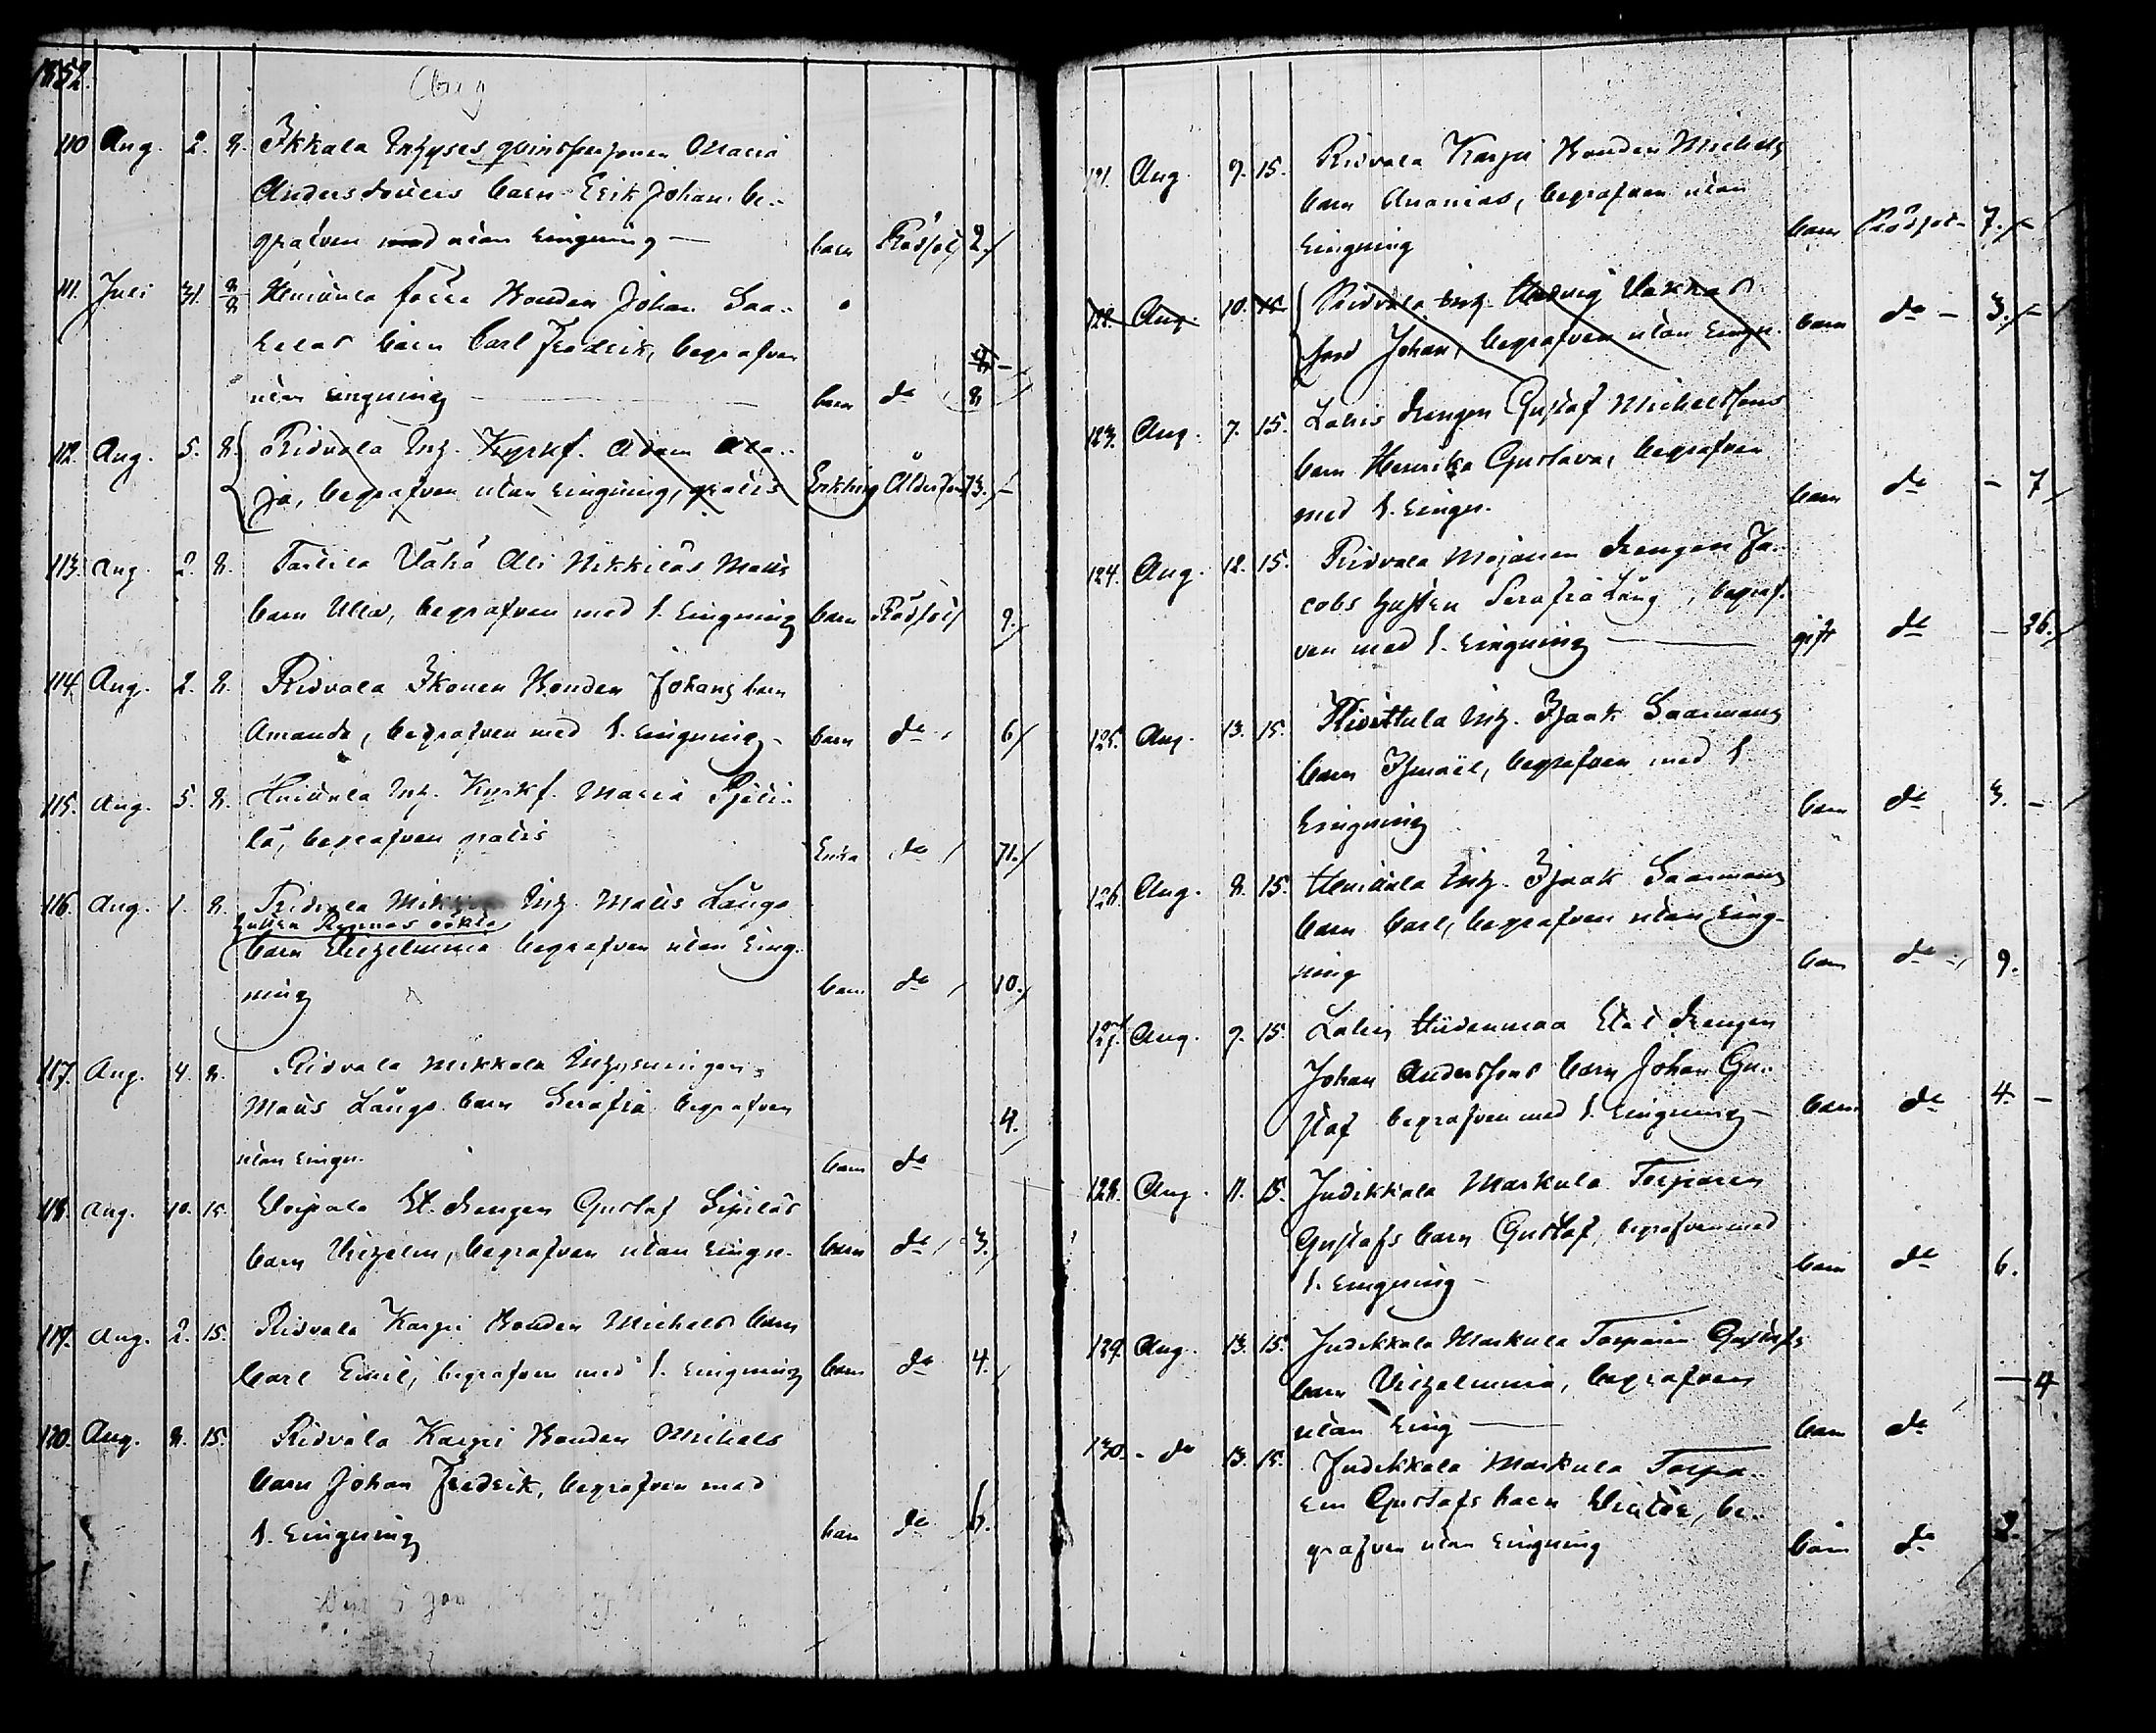 1852.
Aug
110 Aug. 2. 8. Ikkala Inhyses qvinspersonen Maria
Andersdotters barn Erik Johan, be-
grafven med utan Ringning — barn Rödsot 2.
111. Juli 31. 8/8 Bonden Johan
barn Carl Fredrik, begrafven
utan Ringning barn do 8
112. Aug. 5. 8. Ridvala Inh. Kyrkf. Adam
begrafven utan Ringning, gratis Enkling Ålderdom 73. –
113. Aug. 2. 8. Vähä Ali Nikkiläs Matts
barn Ulla, begrafven med 1. Ringning barn Rödsot 9.
114. Aug. 2. 8. Ridvala Ikonen Bonden Johans barn
Amanda, begrafven med 1. Ringning. barn do 6
115. Aug. 5. 8. Inh. Kyrkf. Maria
begrafven gratis Enka do 71.
116. Aug. 1. 8. Ridvala Inh. Matts Långs
hustru
barn Vilhelmina begrafven utan Ring-
ning barn do 10.
117. Aug. 4. 8. Ridvala Mikkola Inhysningen
Matts Långs barn Serafia begrafven 4.
utan Ringn. barn do
118. Aug. 10. 15. Voipala Drengen Gustaf Sipiläs
barn Vilhelm, begrafven utan Ringn. barn do 3.
119. Aug. 2. 15. Ridvala Karpi Bonden Michels barn
Carl Emil, begrafven med 1. Ringning barn do 4.
120. Aug. 8. 15. Ridvala Karpi Bonden Michels
barn Johan Fredrik, begrafven med
1. Ringning barn do 6.
121. Aug 9. 15. Ridvala Karpi Bonden Michels
barn Ananias, begrafven utan
Ringning barn Rödsot – 7. –
122. Aug. 10. 15 Ridvala Inh. Hedvig
Johan, begrafven utan Ringn. barn do – 3. –
123. Aug. 7. 15. Lahis Drengen Gustaf Michelssons
barn Henrika Gustava, begrafven
med 1. Ringn. barn do – 7
124. Aug. 12. 15. Ridvala Mojanen Drengen Ja-
cobs hustru Serafia Lång, begraf-
ven med 1. Ringning — gift do – 26.
125. Aug. 13. 15. Inh. Isaak Saarmans
barn Ismael, begrafven med 1
Ringning barn do 3. –
126. Aug. 8. 15. Inh. Isaak Saarmans
barn Carl, begrafven utan Ring-
ning barn do 9.
127. Aug. 9. 15. Lahis Hiidenmaa Drengen
Johan Anderssons barn Johan Gu-
staf begrafven med 1. Ringning – barn do 4. –
128. Aug. 11. 15. Judikkala Markula Torparen
Gustafs barn Gustaf, begrafven med
1. Ringning – barn do 6.
129. Aug. 13. 15. Judikkala Markula Torparen Gustafs
barn Vilhelmina, begrafven — 4
utan Ring — barn do
130. – do 13. 15. Judikkala Markula Torpa-
ren Gustafs barn be-
grafven utan Ringning barn do 2.